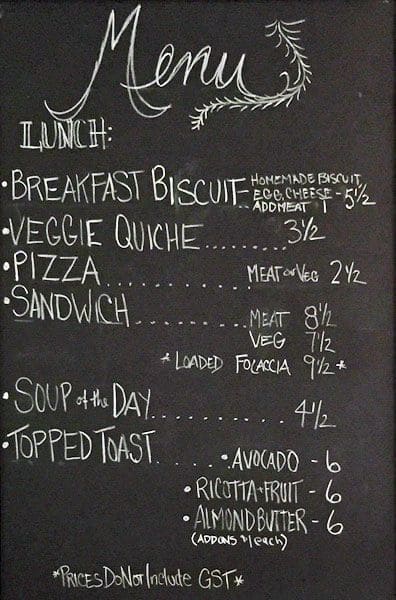 Menu
LUNCH:
•BREAKFAST BISCUIT- HOMEMADE BISCUIT
EGG, CHEESE - 5½
ADD MEAT 1
•VEGGIE QUICHE........ 3½
•PIZZA............ MEAT or VEG 2½
•SANDWICH......... MEAT 8½
VEG 7½
*LOADED FOCACCIA 9½*
•SOUP of the DAY........... 4½
•TOPPED TOAST..... •AVOCADO - 6
•RICOTTA+FRUIT - 6
•ALMOND BUTTER - 6
(ADDONS $1/each)
*PRICES Do Not Include GST*